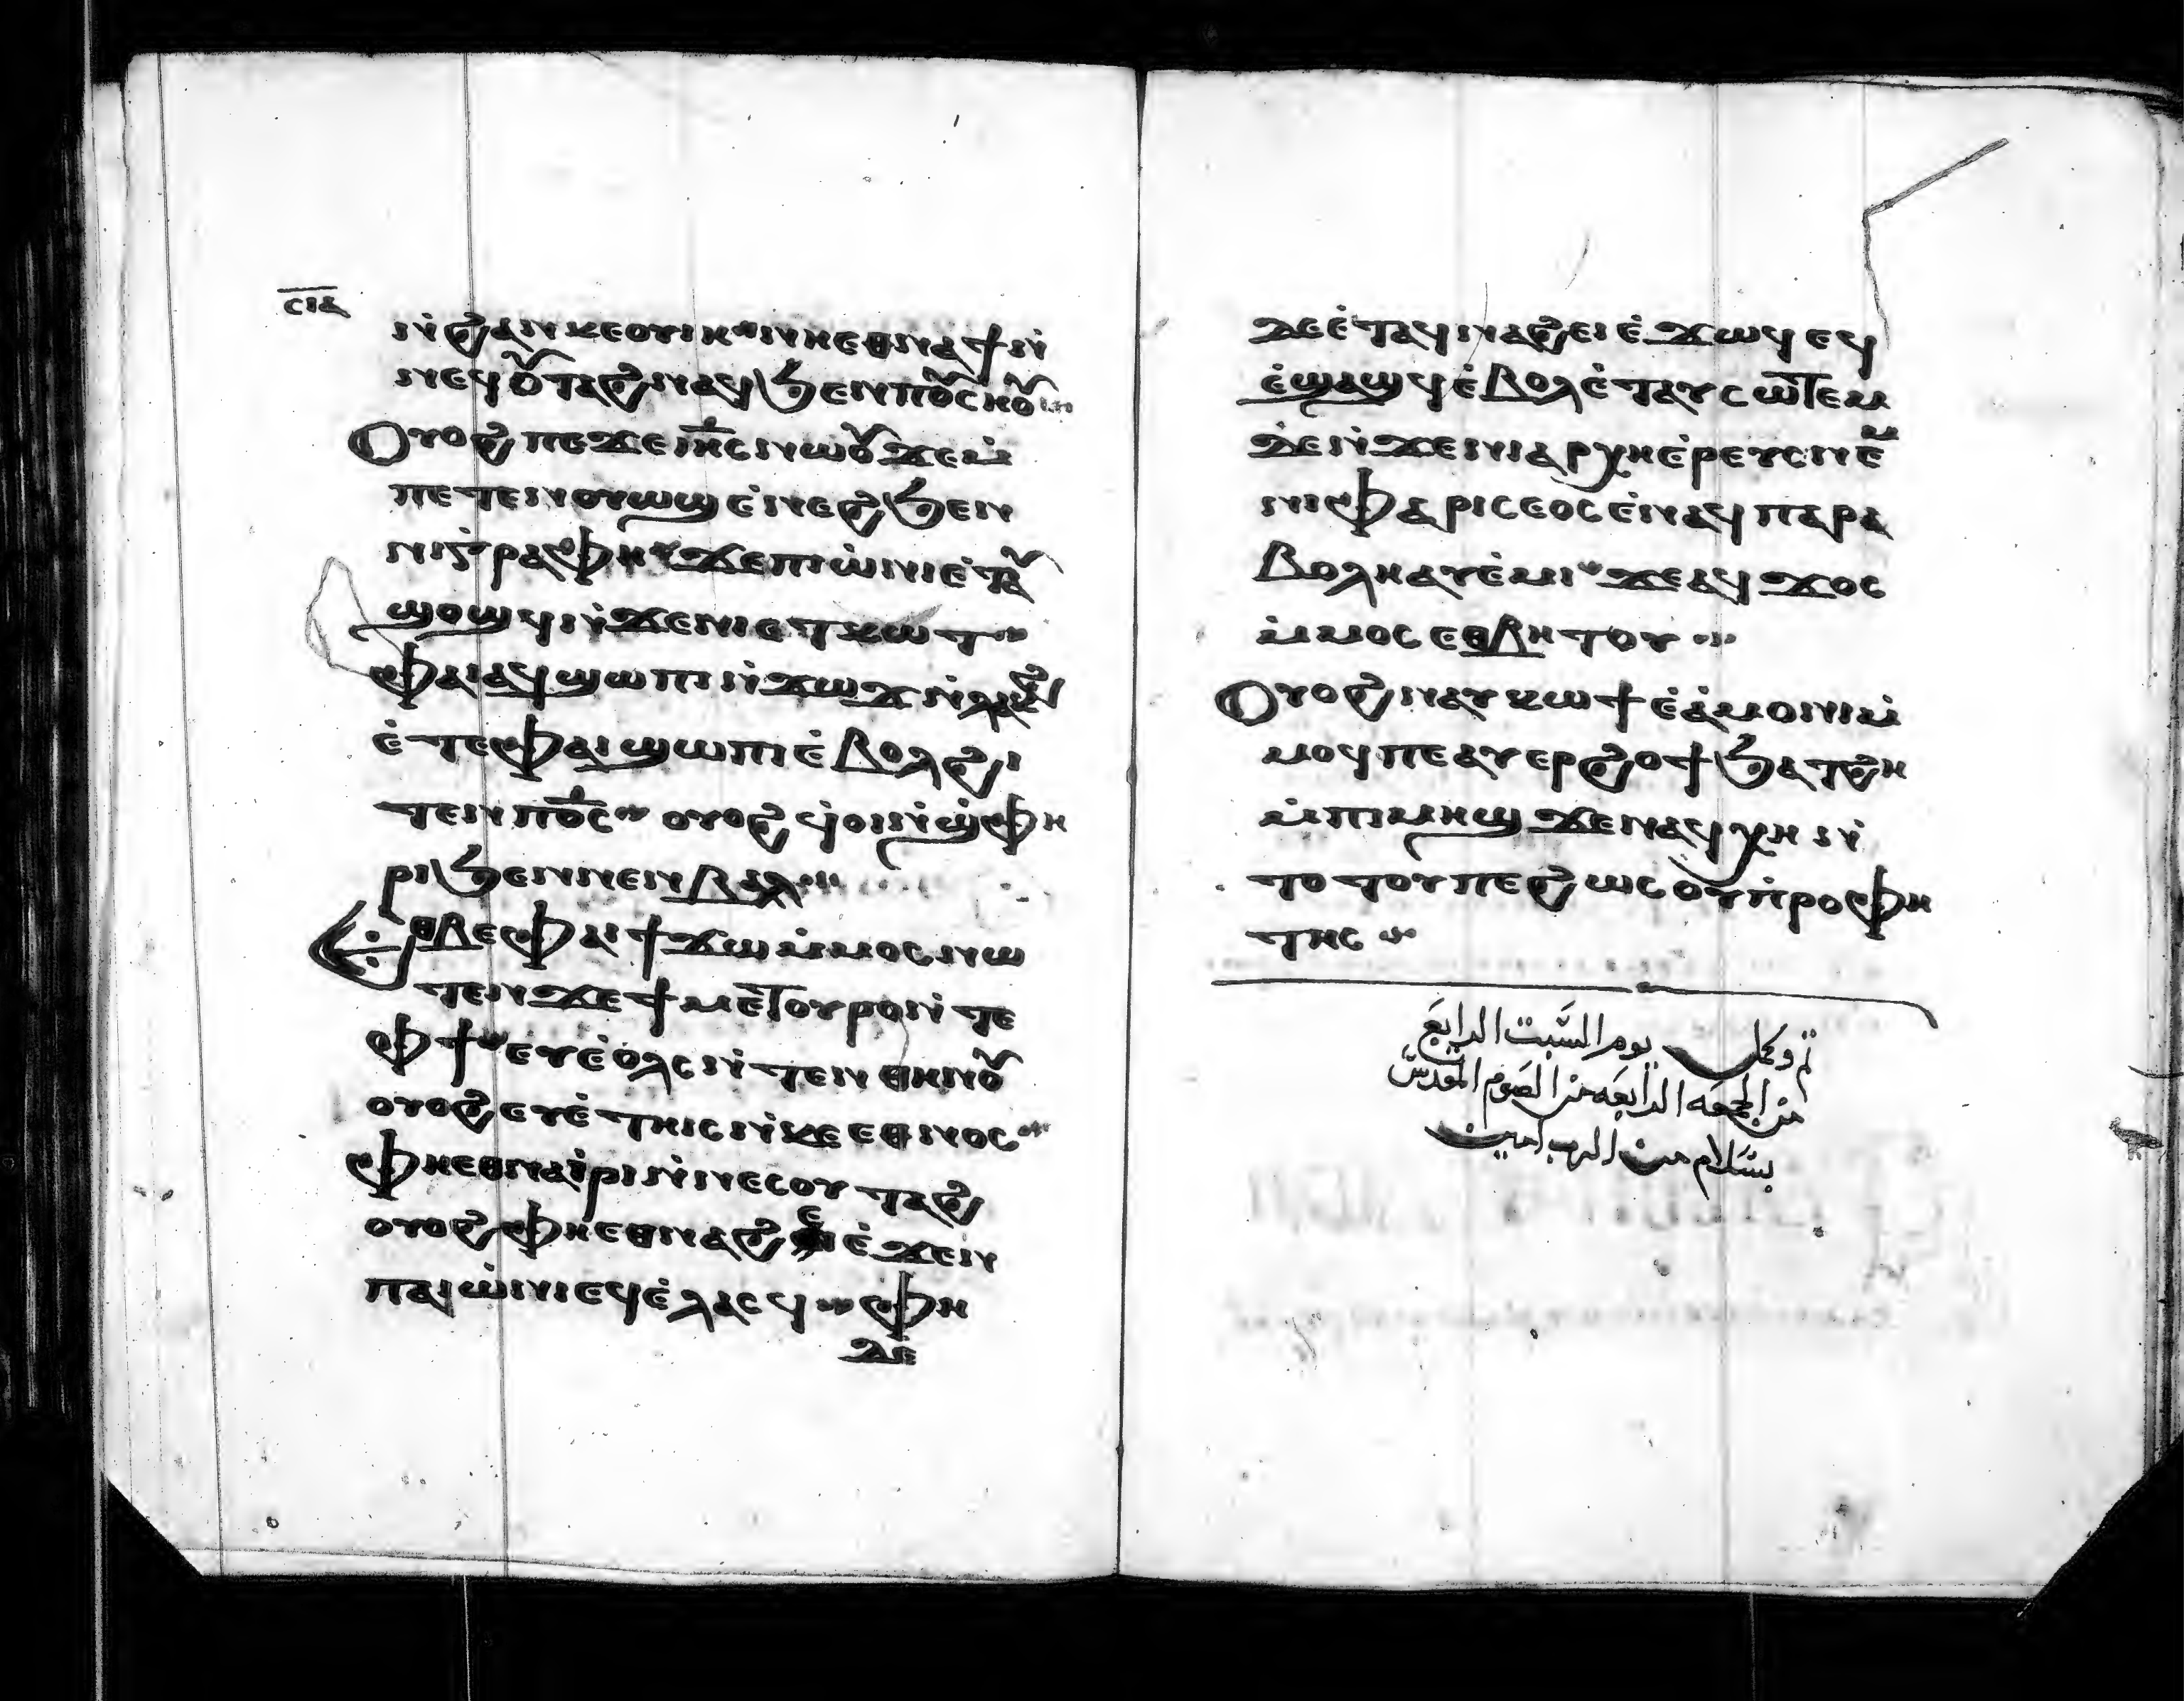 ⲥⲓⲁ
ⲛ̀ϩⲁⲛⲕⲉⲟⲩⲓⲏ ⲛⲏⲉⲑⲛⲁϯⲛ̀
ⲛⲉϥⲟ̆ⲧⲁϩⲛⲁϥϧⲉⲛⲡⲟ̆ⲥⲏⲟ̆
Ⲟⲩⲟϩ ⲡⲉϫⲉⲓⲏ̅ⲥ ⲛⲱⲟ̆ ϫⲉⲙ̀
ⲡⲉⲧⲉⲛⲟⲩⲱϣ ⲉ̀ⲛⲉϩ ϧⲉⲛ
ⲛⲓⲅⲣⲁⲫⲏ ϫⲉⲡⲓⲱ̀ⲛⲓ ⲉ̀ⲧⲁ̆
ϣⲟϣϥ ⲛ̀ϫⲉⲛⲓⲉⲧⲕⲱⲧ
ⲫⲁⲓ ⲁϥϣⲱⲡⲓ ⲛ̀ϫⲱϫ ⲛ̀ⲗⲁⲕϩ
ⲉ̀ⲧⲉⲫⲁⲓ ϣⲱⲡⲓ ⲉ̀ⲃⲟⲗϩⲓ
ⲧⲉⲛ ⲡⲟ̅ⲥ ⲟⲩⲟϩ ϥ̀ⲟⲓⲛ̀ϣ̀ⲫⲏ
ⲣⲓ ϧⲉⲛⲛⲉⲛⲃⲁⲗ
ⲉⲑⲃⲉⲫⲁⲓ ϯϫⲱ ⲙ̀ⲙⲟⲥ ⲛⲱ
ⲧⲉⲛ ϫⲉϯⲙⲉⲧⲟⲩⲣⲟ ⲛ̀ⲧⲉ
ⲫϯ ⲉⲩⲉ̀ⲟⲗⲥ ⲛ̀ⲧⲉⲛ ⲑⲏⲛⲟ̆
ⲟⲩⲟϩ ⲉⲩⲉ̀ⲧⲏⲓⲥ ⲛ̀ⲕⲉⲉⲑⲛⲟⲥ
ⲫⲏⲉⲑⲛⲁⲓ̀ⲣⲓ ⲛ̀ⲛⲉⲥⲟⲩⲧⲁϩ
ⲟⲩⲟϩ ⲫⲏⲉⲑⲛⲁϩⲉⲓ ⲉ̀ϫⲉⲛ
ⲡⲁⲓⲱ̀ⲛⲓ ⲉϥⲉ̀ⲗⲁⲥϥ ⲫⲏ
ⲇⲉ
ⲇⲉ ⲉ̀ⲧⲁϥⲛⲁϩⲉⲓ ⲉ̀ϫⲱϥ ⲉϥ
ⲉ̀ϣⲁϣϥ ⲉ̀ⲃⲟⲗ ⲉ̀ⲧⲁⲩⲥⲱⲧⲉⲙ
ⲇⲉ ⲛ̀ϫⲉⲛⲓⲁⲣⲭⲏⲉ̀ⲣⲉⲩⲥ ⲛⲉⲙ
ⲛⲓⲫⲁⲣⲓⲥⲉⲟⲥ ⲉ̀ⲛⲁϥ ⲡⲁⲣⲁ
ⲃⲟⲗⲏ ⲁⲩⲉ̀ⲙⲓ ϫⲉⲁϥϫⲟⲥ
ⲙ̀ⲙⲟⲥ ⲉⲑⲃⲏⲧⲟⲩ
Ⲟⲩⲟϩ ⲛⲁⲩⲕⲱϯ ⲉ̀ⲁ̀ⲙⲟⲛⲓ ⲙ̀
ⲙⲟϥ ⲡⲉ ⲁⲩⲉⲣϩⲟϯ ϧⲁⲧϩⲏ
ⲙ̀ⲡⲓⲙⲏϣ ϫⲉⲛⲁϥⲭⲏ ⲛ̀
ⲧⲟⲧⲟⲩ ⲡⲉ ϩⲱⲥ ⲟⲩⲡ̀ⲣⲟⲫⲏ
ⲧⲏⲥ
تم وكمل يوم السَّبت الرابعَ
من الجمعه الرابعه من الصوم المقدسّ
بسَلام من الرب امين